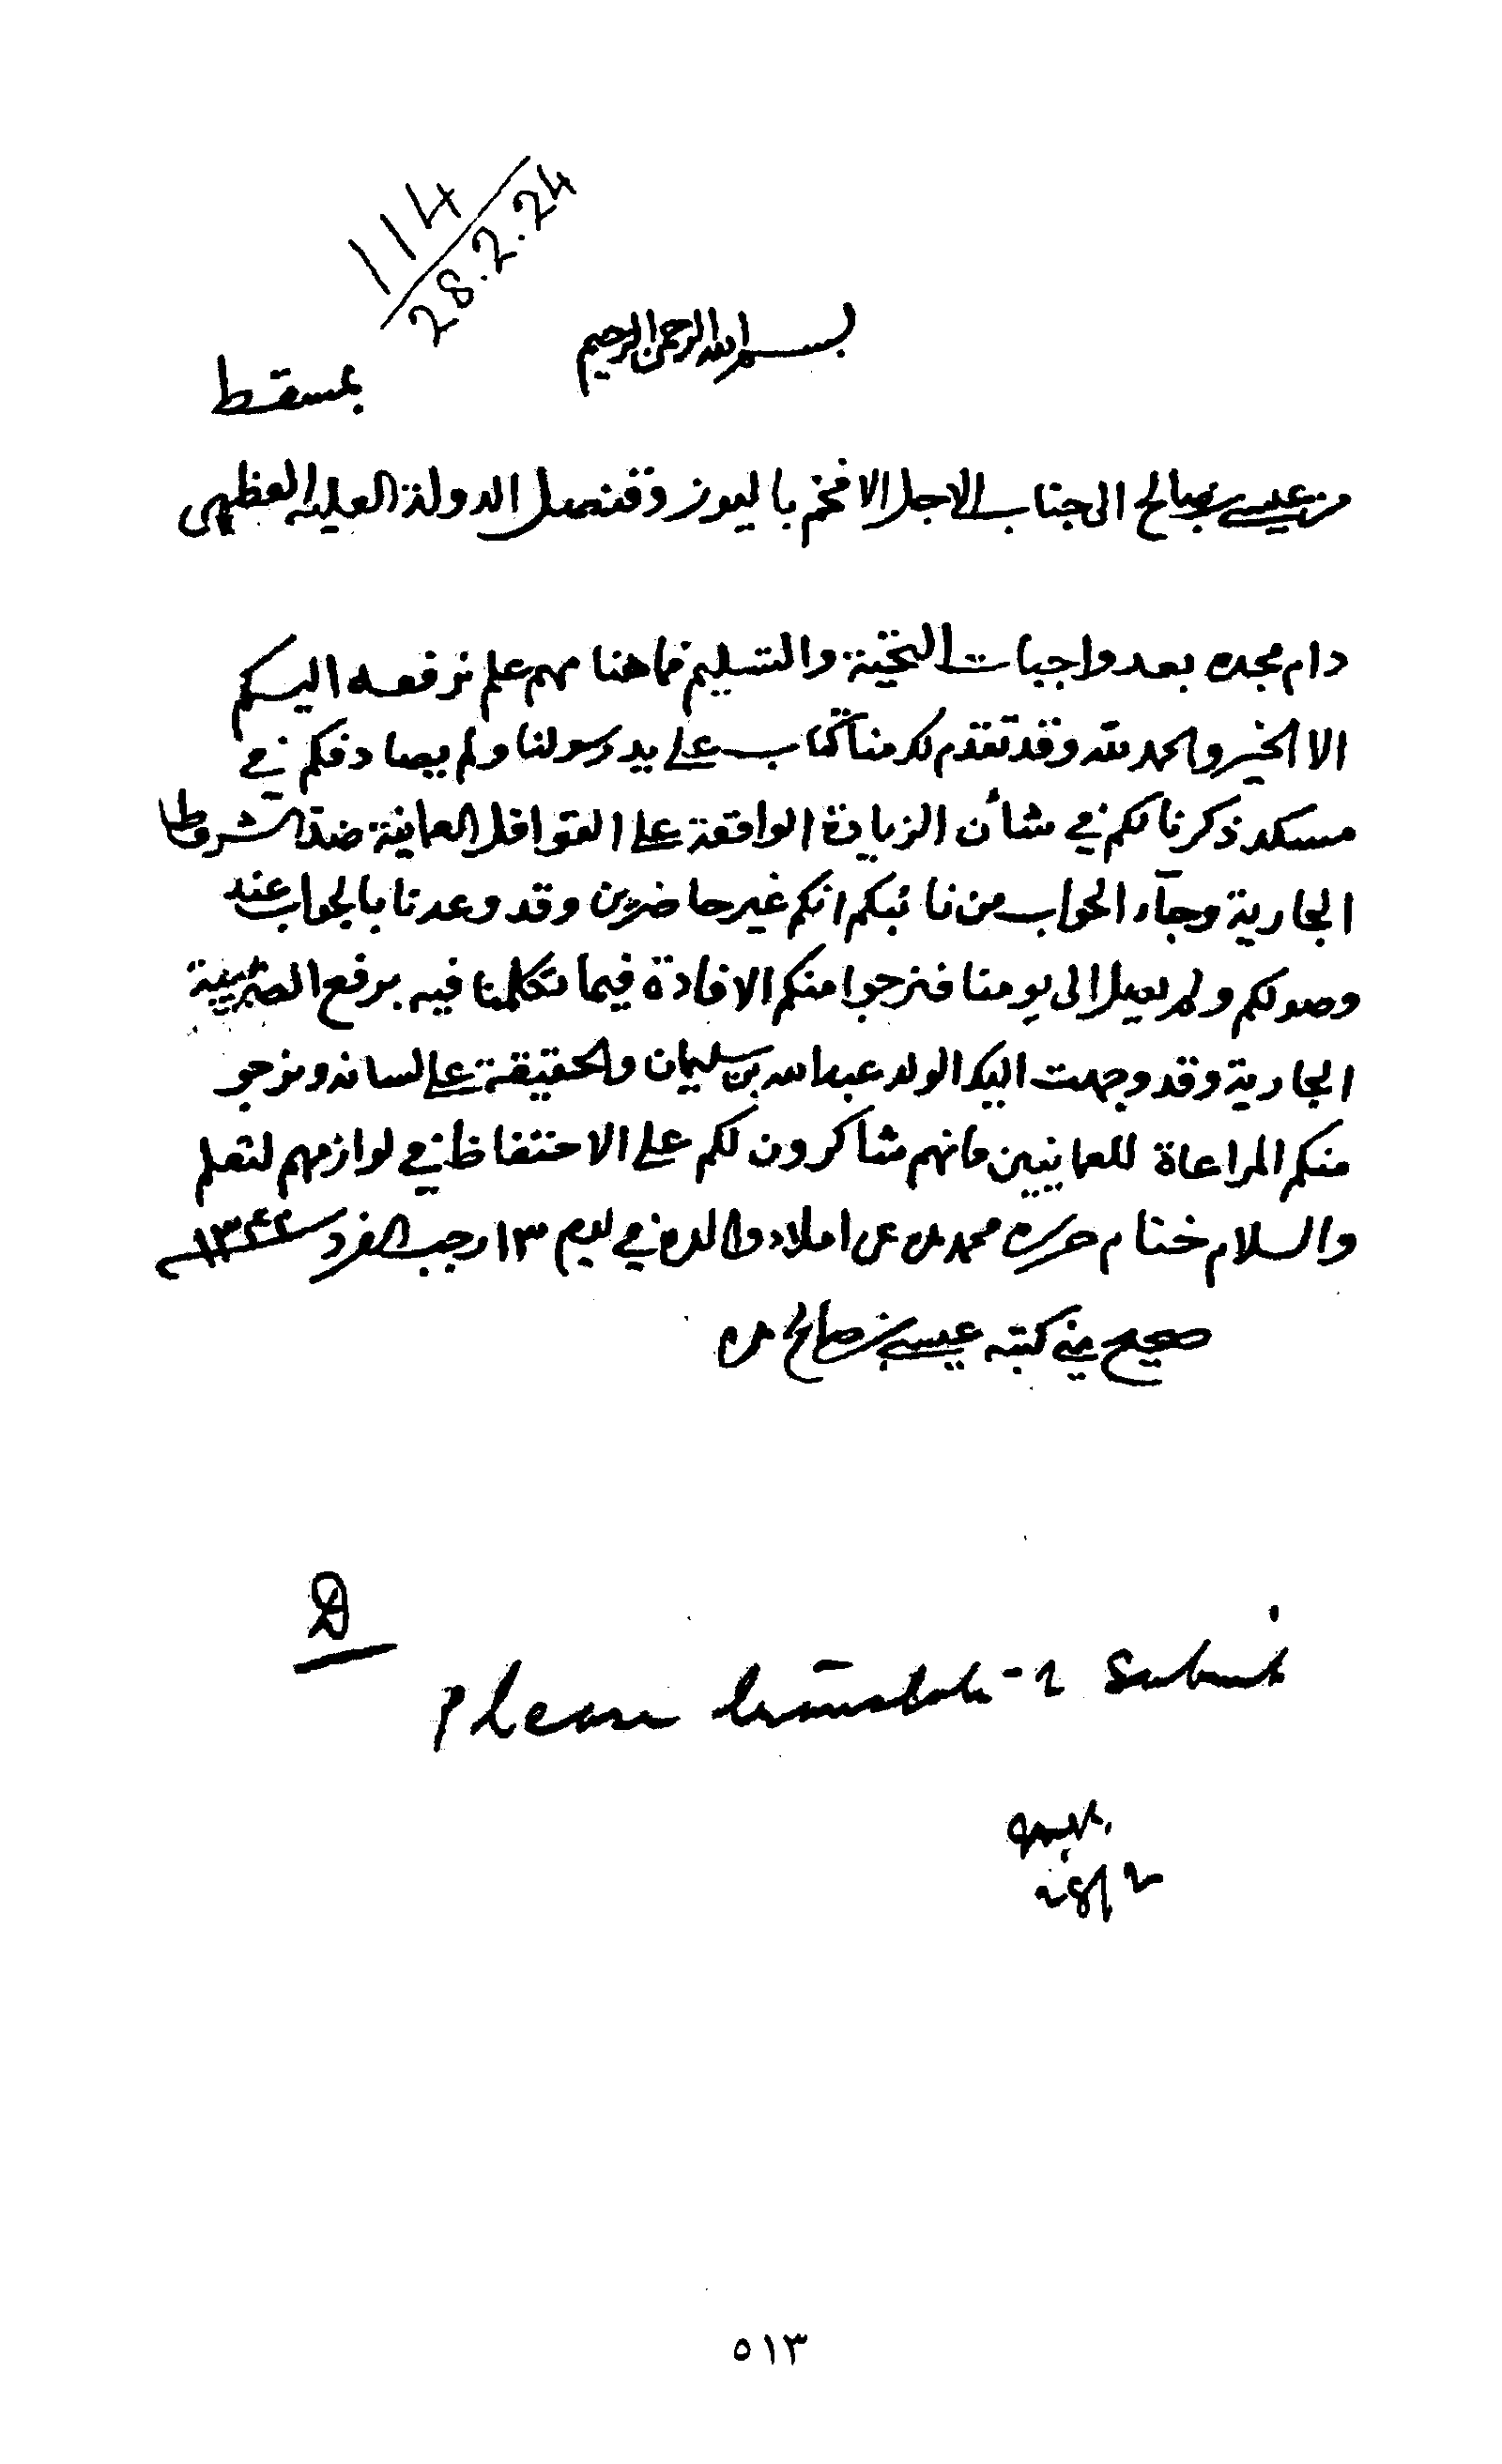 114
28.2.24
بسم الله الرحمن الرحيم
بمسقط
من عيسى بن صالح الى جناب الاجل الافخم باليوز وقنصل الدولة العليه العظمى
دام مجده بعد واجبات التحية والتسليم فما هنا مهم علم نرفعه اليكم
الا الخير والحمد لله وقد تقدم لكم منا كتاب على يد رسولنا ولم يصادفكم في
مسكد ذكرنا لكم في شأن الزيادة الواقعة على القوافل العمانية ضد الشروط
الجارية وجآء الجواب من نائبكم انكم غير حاضرين وقد وعدنا بالجواب عند
وصولكم ولم يصل الى يومنا فنرجوا منكم الافادة فيما تكلمنا فيه برفع الضريبة
الجارية وقد وجهت اليك الولد عبدالله بن سليمان والحقيقة على لسانه ونرجو
منكم المراعاة للعمانيين فانهم شاكرون لكم على الاحتفاظ في لوازمهم لتعلم
والسلام ختام حرره محمد بيده عن املاء والده في يوم ١٣ رجب الفرد سنة ١٣٤٢
صحيح مني كتبه عيسى بن صالح بيده
D
Please translate & submit
28/2
٥١٣